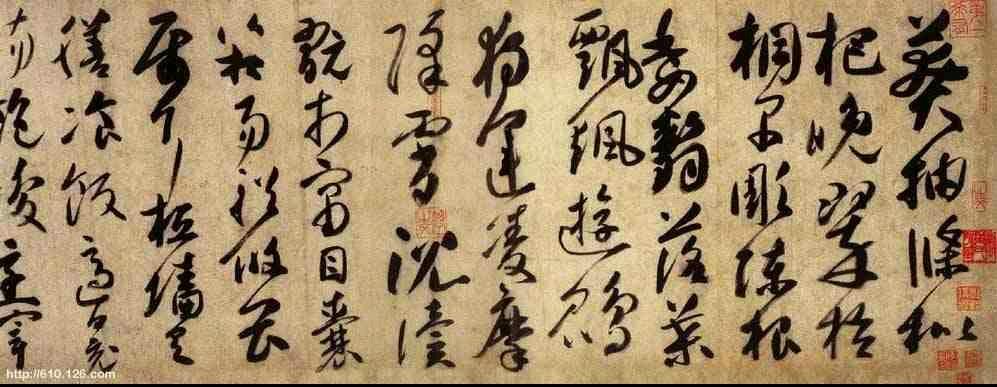 莽抽條枇
杷晚翠梧
桐早彫陳根
委翳落葉
飄颻遊鵾
獨運凌摩
絳霄耽讀
翫市寓目囊
箱易輶攸畏
屬耳垣墻具
膳飡飯適口充
腸飽飫烹宰
http://610.126.com